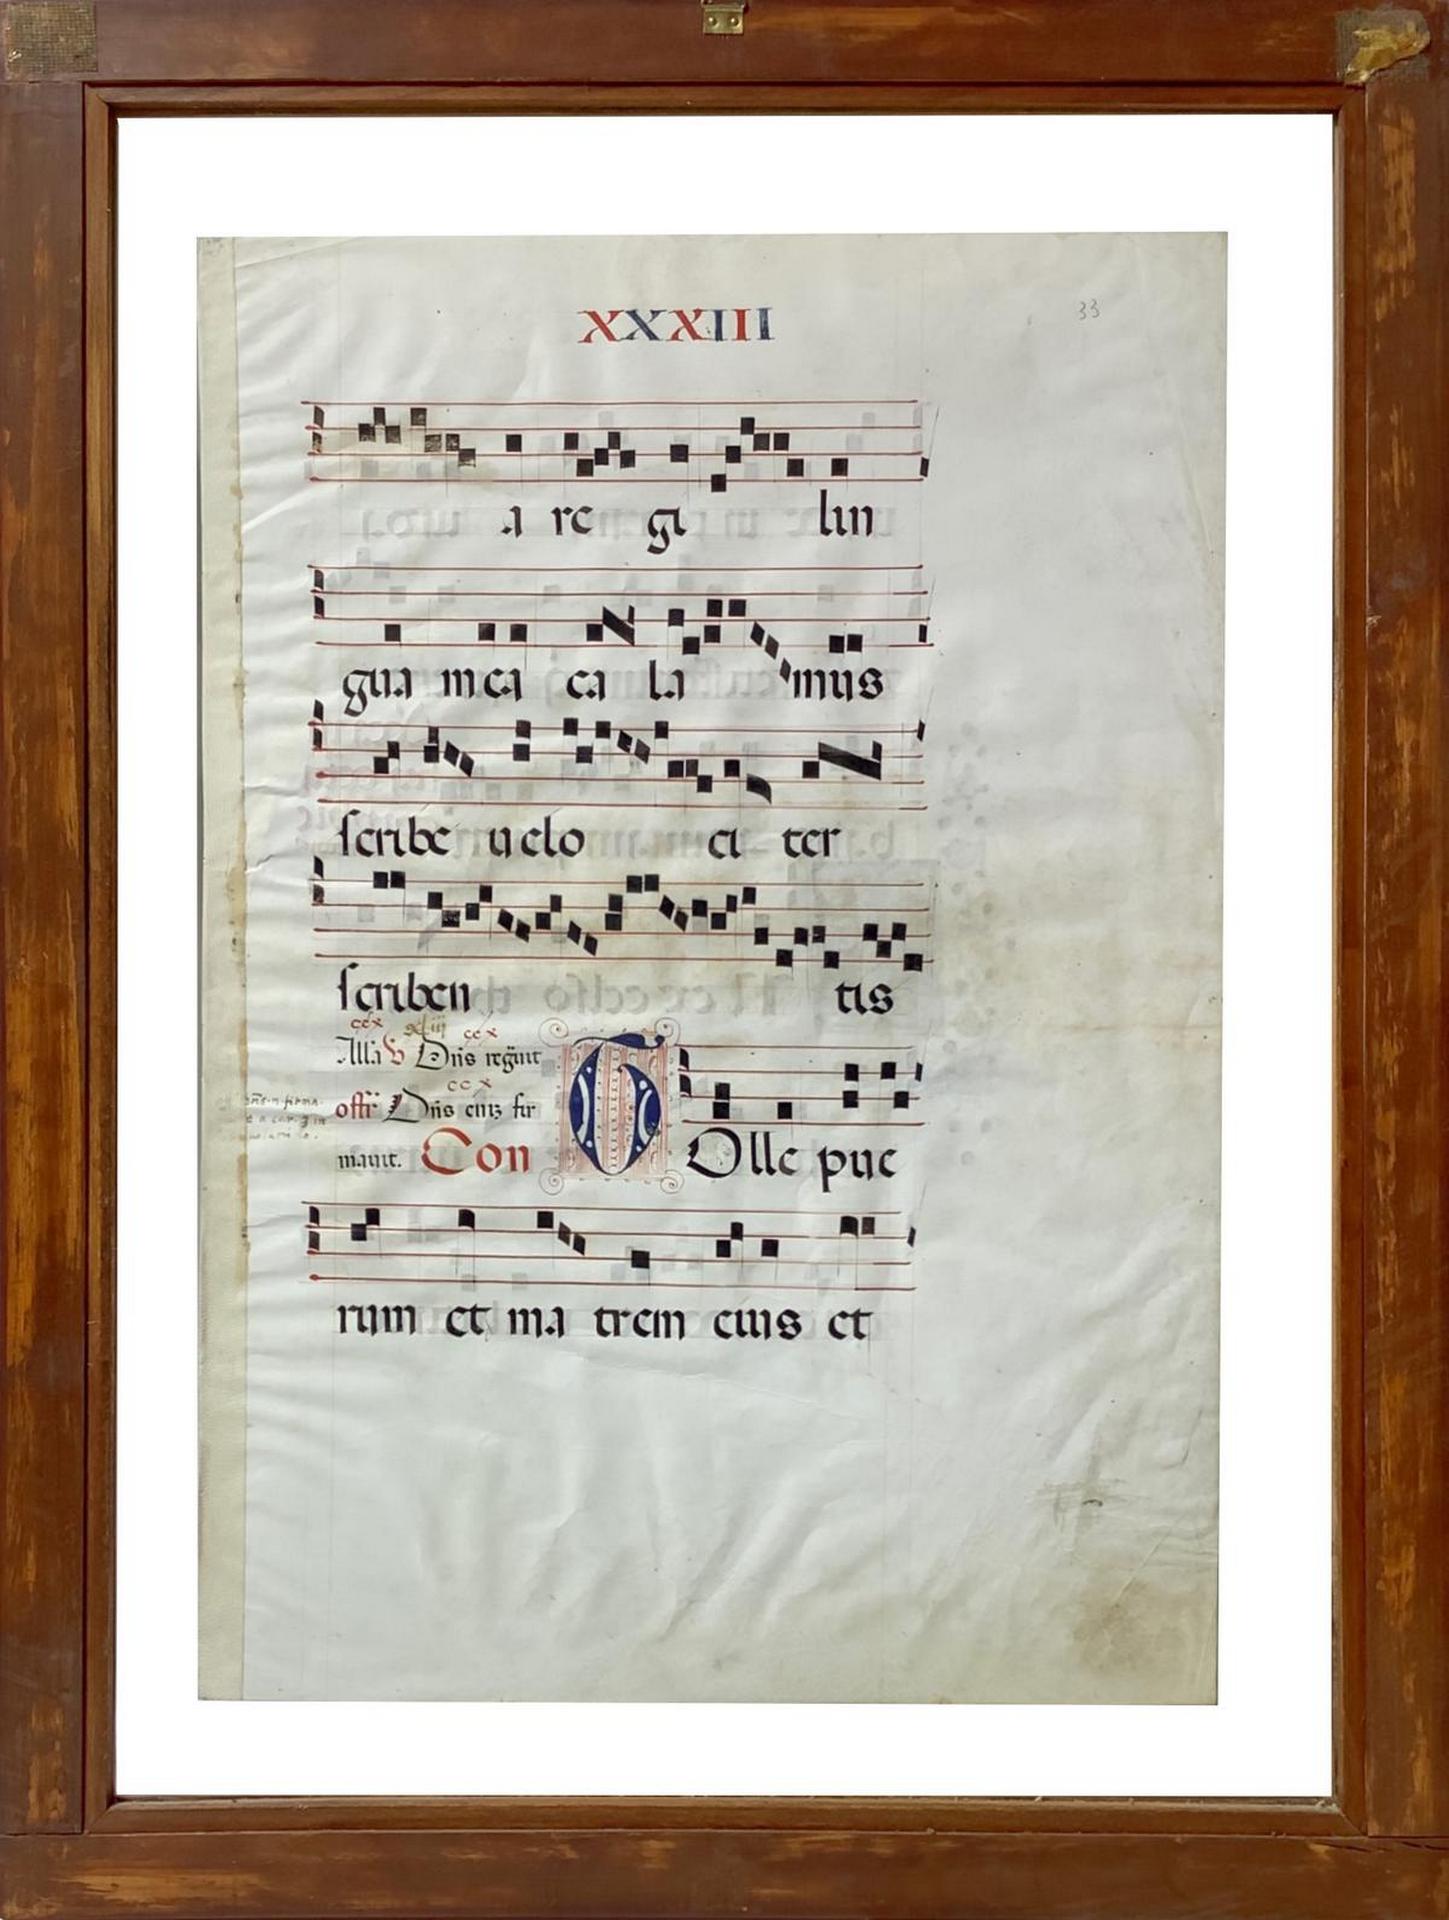 XXXIII
33
a re gi lin
gua mea ca la mus
scribe uelo ci ter
scriben tis
ccx xliii ccx
Alla V Dñs regnit
ccx
offr Dñs eniz fir
mauit. Con TOlle pue
rum et ma trem eius et